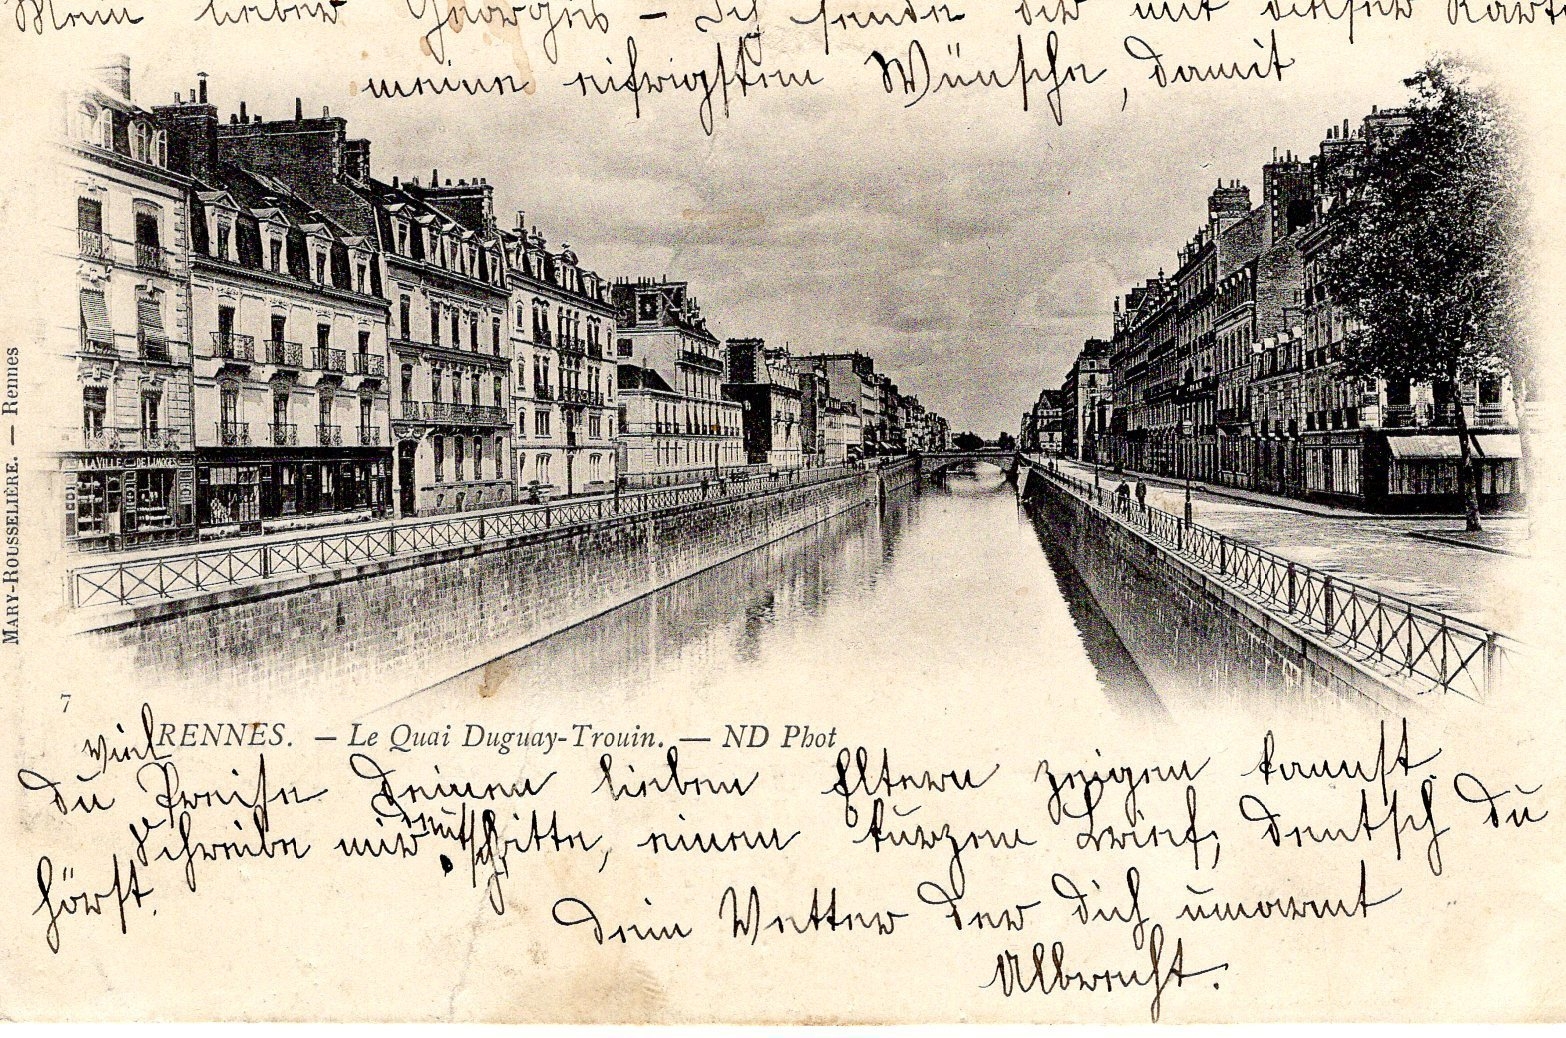 Mein lieber Georges – Ich sende dir mit dieser Karte
meine eifrigsten Wünsche, damit
A LA VILLE DE LIMOGES
MARY-ROUSSELIÈRE. — Rennes
7
RENNES. — Le Quai Duguay-Trouin. — ND Phot
viel
du Preise Deinen lieben Eltern zeigen kannst.
Schreibe mir deutsch bitte, einen kurzen Brief, deutsch du
hörst.
Dein Vetter der dich umarmt
Albrecht.